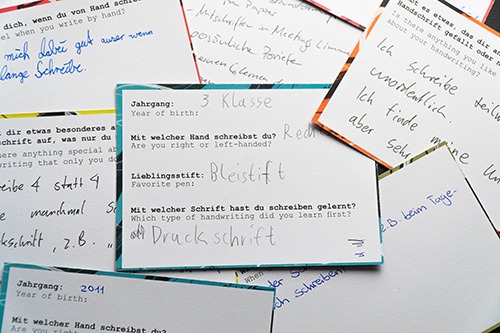 dich, wenn du von Hand
el when you write by hand?
mich dabei gut auser wenn
lange Schreibe.
Papier
Mitschriften in Meeting
persönliche Briefe
bt es etwas, das dir an
Handschrift gefällt oder
is there anything you like
about your handwriting?
Ich schreibe teilw
unordentlich.
Ich finde meine
aber sehr
Jahrgang: 3 Klasse
Year of birth:
Mit welcher Hand schreibst du?
Are you right or left-handed?
Lieblingsstift: Bleistift
Favorite pen:
Mit welcher Schrift hast du schreiben gelernt?
Which type of handwriting did you learn first?
Druckschrift
dir etwas besonderes a
schrift auf, was nur du
here anything special abo
writing that only you do
eibe 4 statt 4
manchmal
ckschrift, z.B. "
z.B. beim Tage-
When
ch schreiben
Jahrgang: 2011
Year of birth:
Mit welcher Hand schreibst du?
Are you right